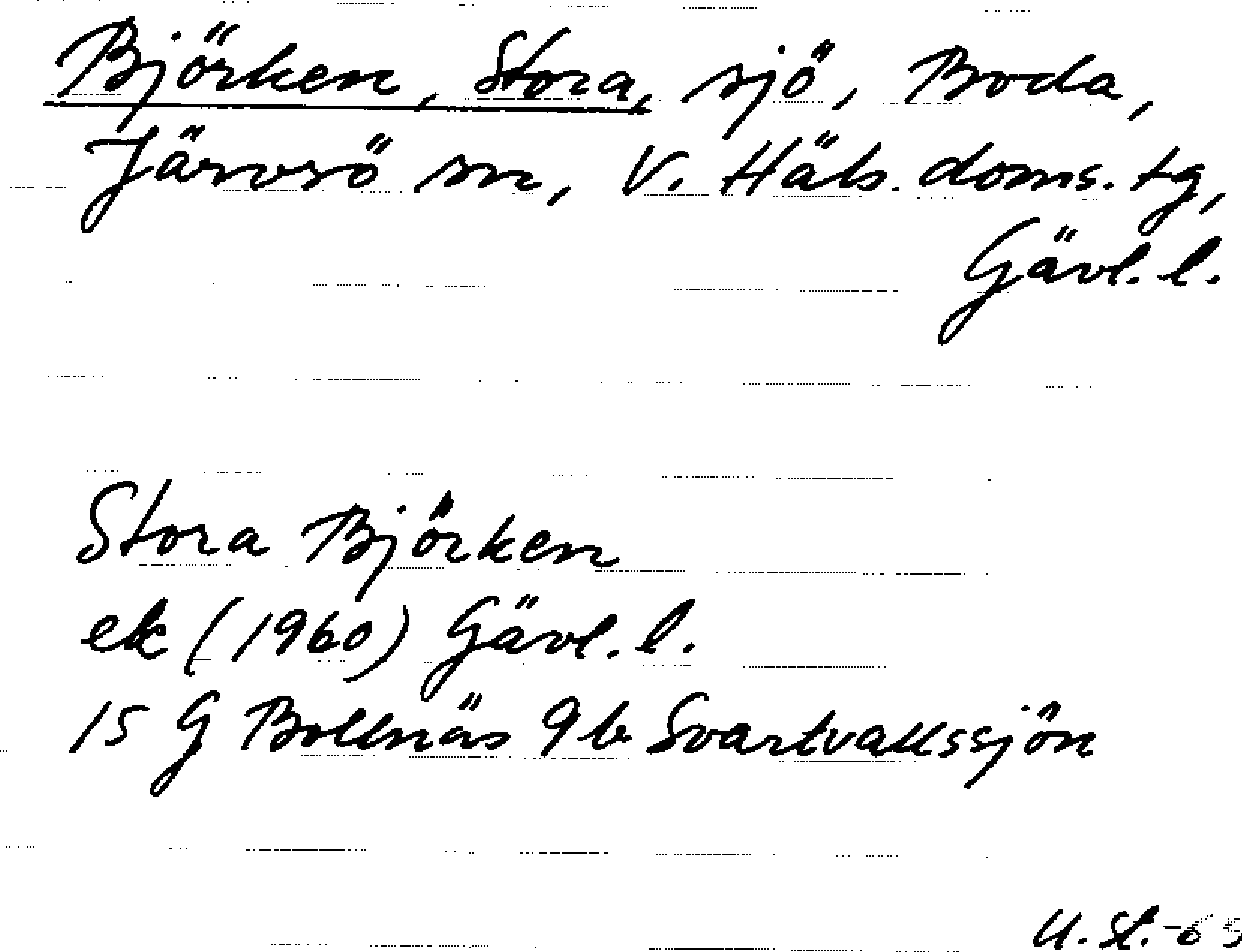 Björken, Stora, sjö, Boda,
Järvsö sn, V. Häls. doms. tg,
Gävl. l.
Stora Björken
ek (1960) Gävl. l.
15 G Bollnäs 9b Svartvallssjön
U. St. -65